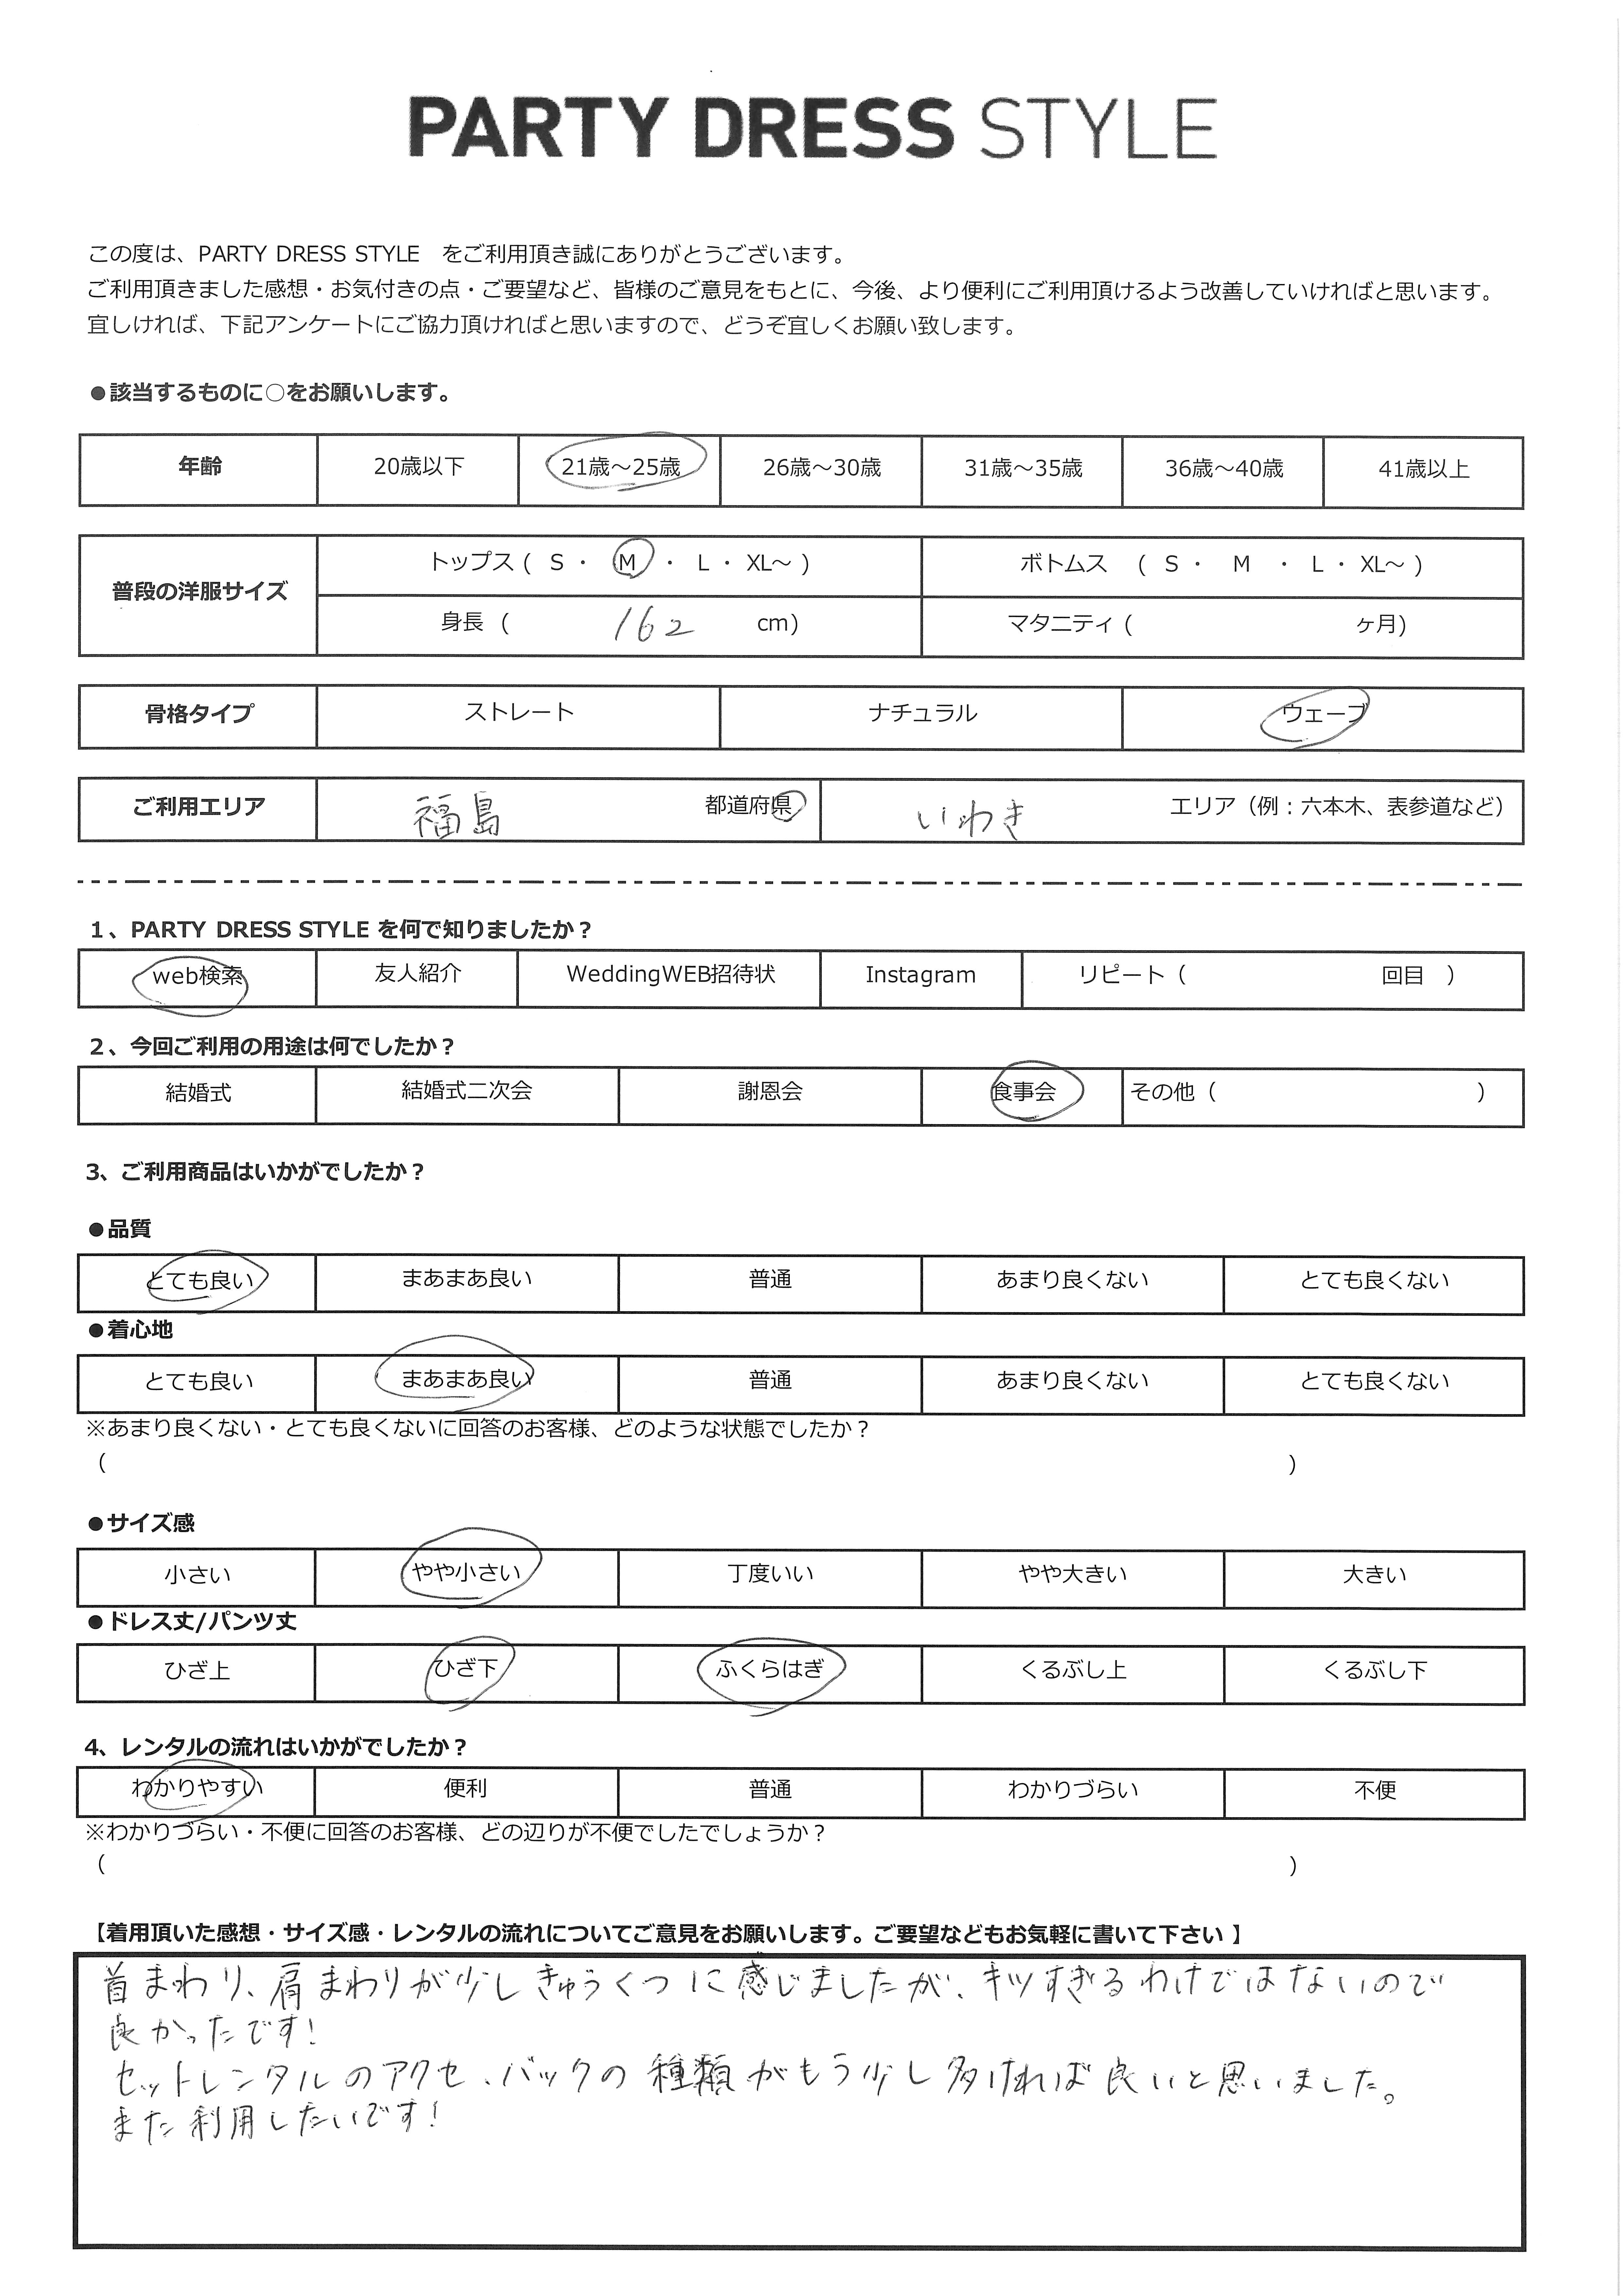 PARTY DRESS STYLE
この度は、PARTY DRESS STYLE　をご利用頂き誠にありがとうございます。
ご利用頂きました感想・お気付きの点・ご要望など、皆様のご意見をもとに、今後、より便利にご利用頂けるよう改善していければと思います。
宜しければ、下記アンケートにご協力頂ければと思いますので、どうぞ宜しくお願い致します。
●該当するものに○をお願いします。
年齢 20歳以下 21歳～25歳 26歳～30歳 31歳～35歳 36歳～40歳 41歳以上
普段の洋服サイズ
トップス ( S ・ M ・ L ・ XL～ ) ボトムス ( S ・ M ・ L ・ XL～ )
身長 ( 162 cm) マタニティ ( ヶ月)
骨格タイプ ストレート ナチュラル ウェーブ
ご利用エリア 福島 都道府県 いわき エリア（例：六本木、表参道など）
1、PARTY DRESS STYLE を何で知りましたか？
web検索 友人紹介 WeddingWEB招待状 Instagram リピート（ 回目 ）
2、今回ご利用の用途は何でしたか？
結婚式 結婚式二次会 謝恩会 食事会 その他（ ）
3、ご利用商品はいかがでしたか？
●品質
とても良い まあまあ良い 普通 あまり良くない とても良くない
●着心地
とても良い まあまあ良い 普通 あまり良くない とても良くない
※あまり良くない・とても良くないに回答のお客様、どのような状態でしたか？
（ ）
●サイズ感
小さい やや小さい 丁度いい やや大きい 大きい
●ドレス丈/パンツ丈
ひざ上 ひざ下 ふくらはぎ くるぶし上 くるぶし下
4、レンタルの流れはいかがでしたか？
わかりやすい 便利 普通 わかりづらい 不便
※わかりづらい・不便に回答のお客様、どの辺りが不便でしたでしょうか？
（ ）
【着用頂いた感想・サイズ感・レンタルの流れについてご意見をお願いします。ご要望などもお気軽に書いて下さい 】
首まわり、肩まわりが少しきゅうくつに感じましたが、キツすぎるわけではないので
良かったです！
セットレンタルのアクセ、バックの種類がもう少し多ければ良いと思いました。
また利用したいです！